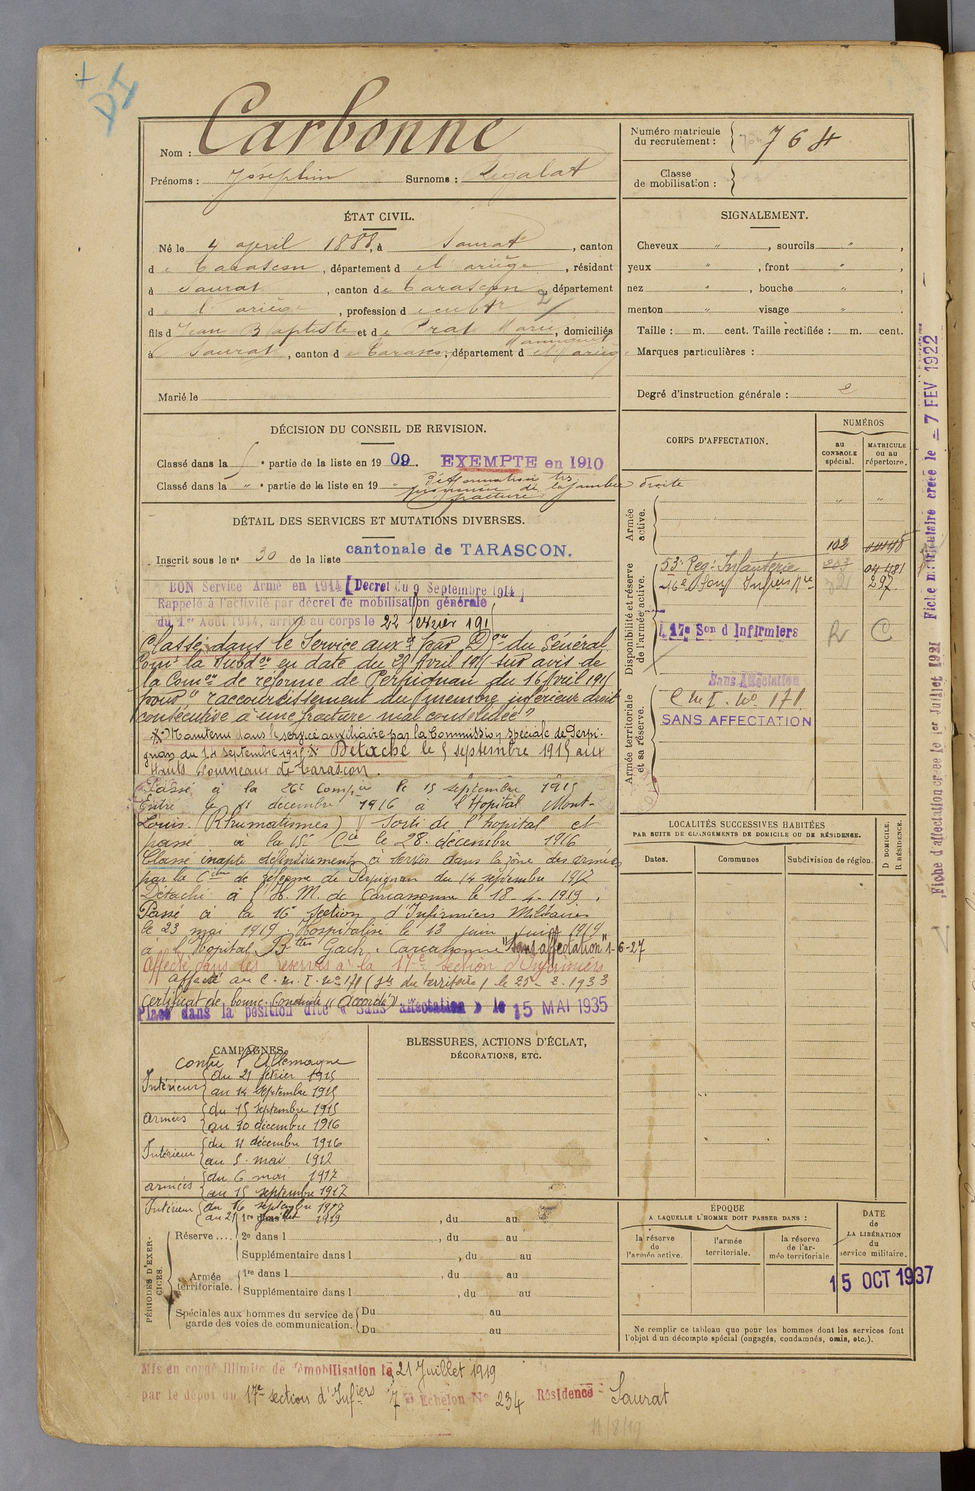 Nom : Carbonne
Prénoms : Joséphin Surnoms : Legalat
Numéro matricule du recrutement : 764
Classe de mobilisation :
ÉTAT CIVIL.
Né le 4 april 1888, à Saurat, canton
de Tarascon, département de l'ariège, résidant
à Saurat, canton de Tarascon, département
de l'ariège, profession de cultr
fils de Jean Baptiste et de Prat Marie, domiciliés
à Saurat, canton de Tarascon, département de l'Ariège
Marié le
SIGNALEMENT.
Cheveux " , sourcils " ,
yeux " , front " ,
nez " , bouche " ,
menton " visage " .
Taille : m. cent. Taille rectifiée : m. cent.
Marques particulières :
Degré d'instruction générale : 2
DÉCISION DU CONSEIL DE REVISION.
Classé dans la " partie de la liste en 1909. EXEMPTÉ en 1910
Classé dans la " " partie de la liste en 19 déformation
de la jambe droite
fracture
DÉTAIL DES SERVICES ET MUTATIONS DIVERSES.
Inscrit sous le n° 30 de la liste cantonale de TARASCON.
BON Service Armé en 1914 [Decret du 9 Septembre 1914]
Rappelé à l'activité par décret de mobilisation générale
du 1er Août 1914, arrivé au corps le 22 février 191
Classé dans le Service auxre par Don du Général
Comt la Subdon en date du 28 Avril 1915 sur avis de
la Comon de réforme de Perpignan du 16 Avril 1915
pour "raccourcissement du membre inférieur droit
consécutive à une fracture mal consolidée"
Maintenu dans le service auxiliaire par la Commission Spéciale de Perpi-
gnan du 14 septembre 1915 Détaché le 5 septembre 1915 aux
Hauts Fourneaux de Tarascon.
Passé à la 26e Compie le 15 septembre 1915
Entré le 11 décembre 1916 à l'Hopital Mont-
Louis. (Rhumatismes) Sorti de l'hopital et
passé à la 15e Cie le 28 décembre 1916
Classé inapte définitivement à servir dans la zone des armées
par la Cion de réforme de Perpignan du 14 septembre 1917
Détaché à l'H. M. de Carcassonne le 18-4-1919.
Passé à la 16e Section d'Infirmiers Militaires
le 23 mai 1919. Hospitalisé le 13 juin 1919
à l'Hopital Bttes Gach. Carcassonne "Sans affectation" 1-6-27
Affecté dans les réserves à la 17e Section d'Infirmiers
Affecté au C. m. I. n° 171 (Sts du territoire) le 25-2-1933
Certificat de bonne Conduite "Accordé"
Placé dans la position dite « Sans affectation » le 15 MAI 1935
CORPS D'AFFECTATION.
NUMÉROS
au CONTROLE spécial.
MATRICULE ou au répertoire.
Armée active.
" "
102
Disponibilité et réserve de l'armée active.
53e Reg. Infanterie 04481
16e Son Infirs Mre 297
17e Son d'Infirmiers R C
Armée territoriale et sa réserve.
Sans Affectation
C m I. n° 171
SANS AFFECTATION
LOCALITÉS SUCCESSIVES HABITÉES
PAR SUITE DE CHANGEMENTS DE DOMICILE OU DE RÉSIDENCE.
Dates. Communes Subdivision de région.
D. DOMICILE. R. RÉSIDENCE.
CAMPAGNES.
Contre l'Allemagne
Intérieur du 21 février 1915
au 14 septembre 1915
armées du 15 septembre 1915
au 10 décembre 1916
Intérieur du 11 décembre 1916
au 5 mai 1917
armées du 6 mai 1917
au 15 septembre 1917
Intérieur du 16 septembre 1917
au 21 juillet 1919
BLESSURES, ACTIONS D'ÉCLAT,
DÉCORATIONS, ETC.
PÉRIODES D'EXERCICES.
Réserve .... 1re dans l , du au
2e dans l , du au
Supplémentaire dans l , du au
Armée territoriale. 1re dans l , du au
Supplémentaire dans l , du au
Spéciales aux hommes du service de garde des voies de communication. Du au
Du au
ÉPOQUE
A LAQUELLE L'HOMME DOIT PASSER DANS :
la réserve de l'armée active.
l'armée territoriale.
la réserve de l'armée territoriale.
DATE de LA LIBÉRATION du service militaire.
15 OCT 1937
Ne remplir ce tableau que pour les hommes dont les services font
l'objet d'un décompte spécial (engagés, condamnés, omis, etc.).
Mis en congé illimité de démobilisation le 21 Juillet 1919
par le dépôt du 17e section d'Infiers 7e Echelon N° 234 Résidence Saurat
11/8/19
Fiche d'affectation créée le 1er Juillet 1921 Fiche matriculaire créée le 7 FEV 1922